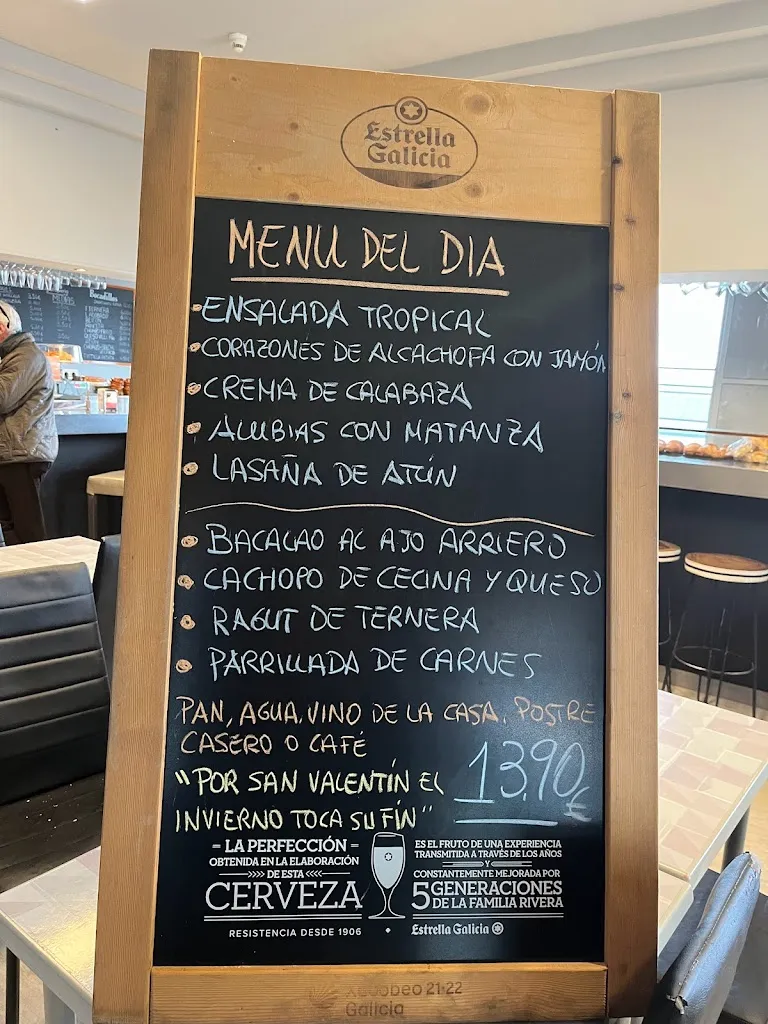 Estrella
Galicia
MENU DEL DIA
ENSALADA TROPICAL
CORAZONES DE ALCACHOFA CON JAMÓN
CREMA DE CALABAZA
ALUBIAS CON MATANZA
LASAÑA DE ATÚN
BACALAO AL AJO ARRIERO
CACHOPO DE CECINA Y QUESO
RAGUT DE TERNERA
PARRILLADA DE CARNES
PAN, AGUA, VINO DE LA CASA, POSTRE
CASERO O CAFÉ
"POR SAN VALENTÍN EL
INVIERNO TOCA SU FÍN"
13,90€
LA PERFECCIÓN
OBTENIDA EN LA ELABORACIÓN
DE ESTA
CERVEZA
RESISTENCIA DESDE 1906
ES EL FRUTO DE UNA EXPERIENCIA
TRANSMITIDA A TRAVÉS DE LOS AÑOS
Y
CONSTANTEMENTE MEJORADA POR
5 GENERACIONES
DE LA FAMILIA RIVERA
Estrella Galicia
Xacobeo 21·22
Galicia
Bocadillos